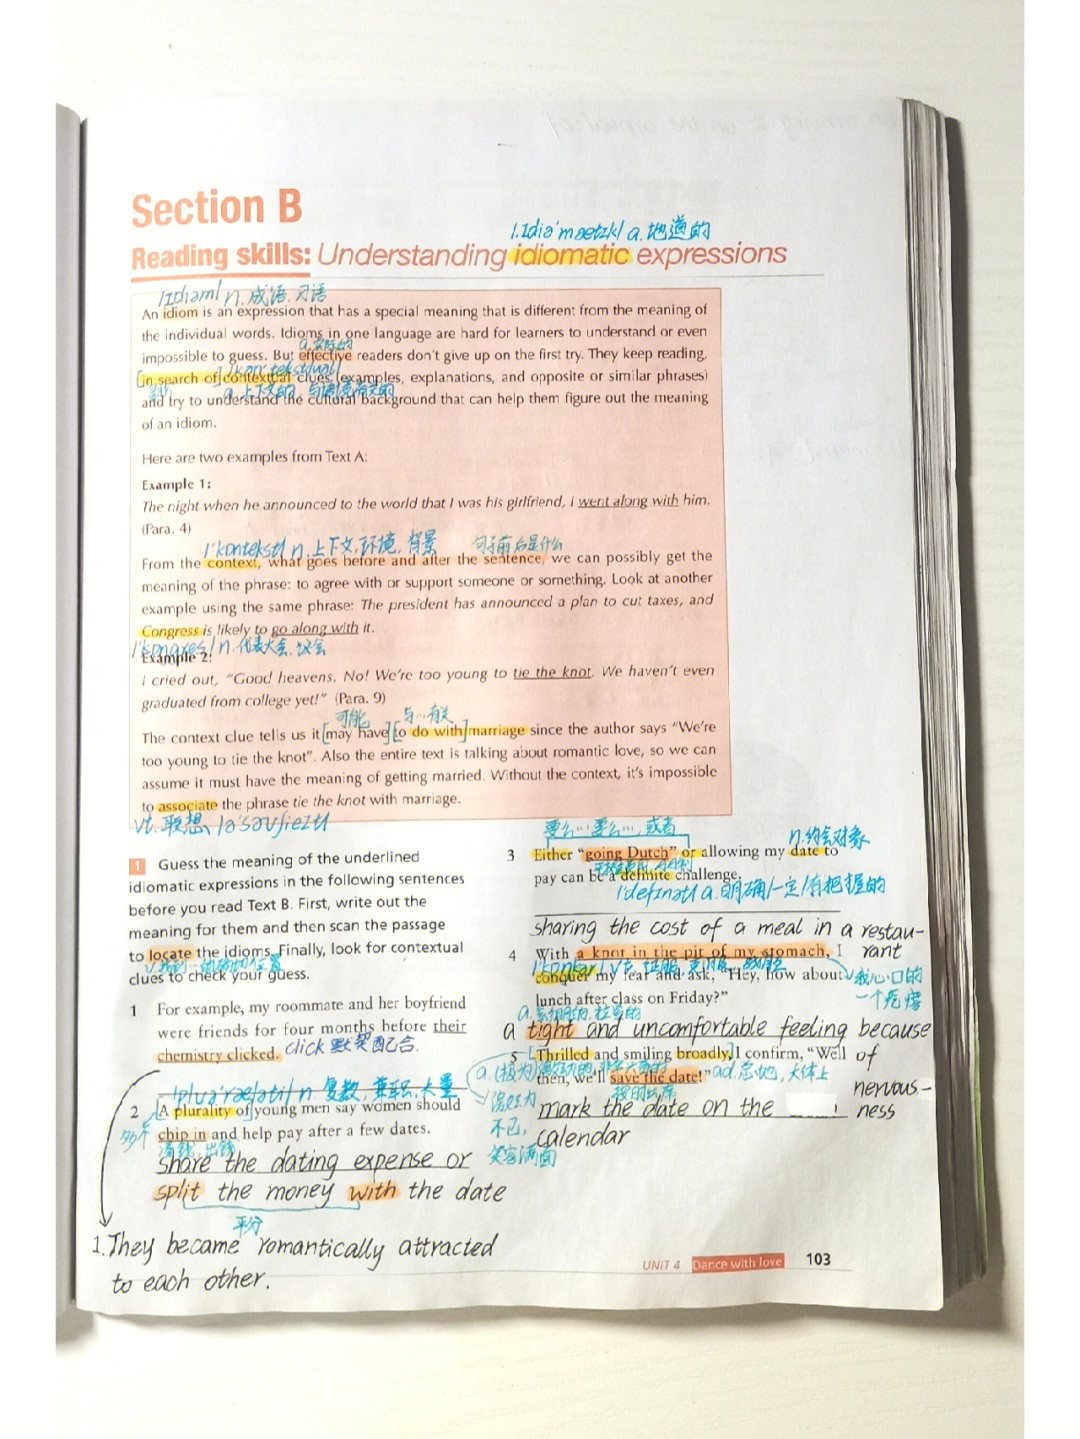 Section B
/ˌɪdiə'mætɪk/ a.地道的
Reading skills: Understanding idiomatic expressions
/ɪdɪəm/ n.成语,习语
An idiom is an expression that has a special meaning that is different from the meaning of
the individual words. Idioms in one language are hard for learners to understand or even
a.实际的
impossible to guess. But effective readers don't give up on the first try. They keep reading,
/kən'tekstʃuəl/
[in search of] contextual clues (examples, explanations, and opposite or similar phrases)
a.上下文的,与语境有关的
and try to understand the cultural background that can help them figure out the meaning
of an idiom.
Here are two examples from Text A:
Example 1:
The night when he announced to the world that I was his girlfriend, I went along with him.
(Para. 4)
/'kɒntekst/ n.上下文,环境,背景 句子前后是什么
From the context, what goes before and after the sentence, we can possibly get the
meaning of the phrase: to agree with or support someone or something. Look at another
example using the same phrase: The president has announced a plan to cut taxes, and
Congress is likely to go along with it.
/'kɒŋɡres/ n.代表大会,议会
Example 2:
I cried out, "Good heavens. No! We're too young to tie the knot. We haven't even
graduated from college yet!" (Para. 9)
可能 与…有关
The context clue tells us it [may have] [to do with] marriage since the author says "We're
too young to tie the knot". Also the entire text is talking about romantic love, so we can
assume it must have the meaning of getting married. Without the context, it's impossible
to associate the phrase tie the knot with marriage.
vt.联想 /ə'səʊʃieɪt/
1 Guess the meaning of the underlined
idiomatic expressions in the following sentences
before you read Text B. First, write out the
meaning for them and then scan the passage
to locate the idioms. Finally, look for contextual
clues to check your guess.
1 For example, my roommate and her boyfriend
were friends for four months before their
chemistry clicked. click 默契配合.
/ˌplʊə'ræləti/ n.复数,兼职,大量
2 [A plurality of] young men say women should
多个
chip in and help pay after a few dates.
凑钱,出钱
share the dating expense or
split the money with the date
平分
1.They became romantically attracted
to each other.
要么…要么…,或者
n.约会对象
3 Either "going Dutch" or allowing my date to
pay can be a definite challenge.
/'defɪnət/ a.明确/一定/有把握的
sharing the cost of a meal in a restau-
rant
4 With a knot in the pit of my stomach, I
/'kɒŋkə/ vt.征服,克服,战胜
conquer my fear and ask, "Hey, how about
我心口的
一个疙瘩
lunch after class on Friday?"
a tight and uncomfortable feeling because
of
nervous-
ness
5 [Thrilled and smiling broadly,] I confirm, "Well
then, we'll save the date!" ad.总地,大体上
激动的
不已,
笑容满面
mark the date on the
calendar
UNIT 4 Dance with love 103